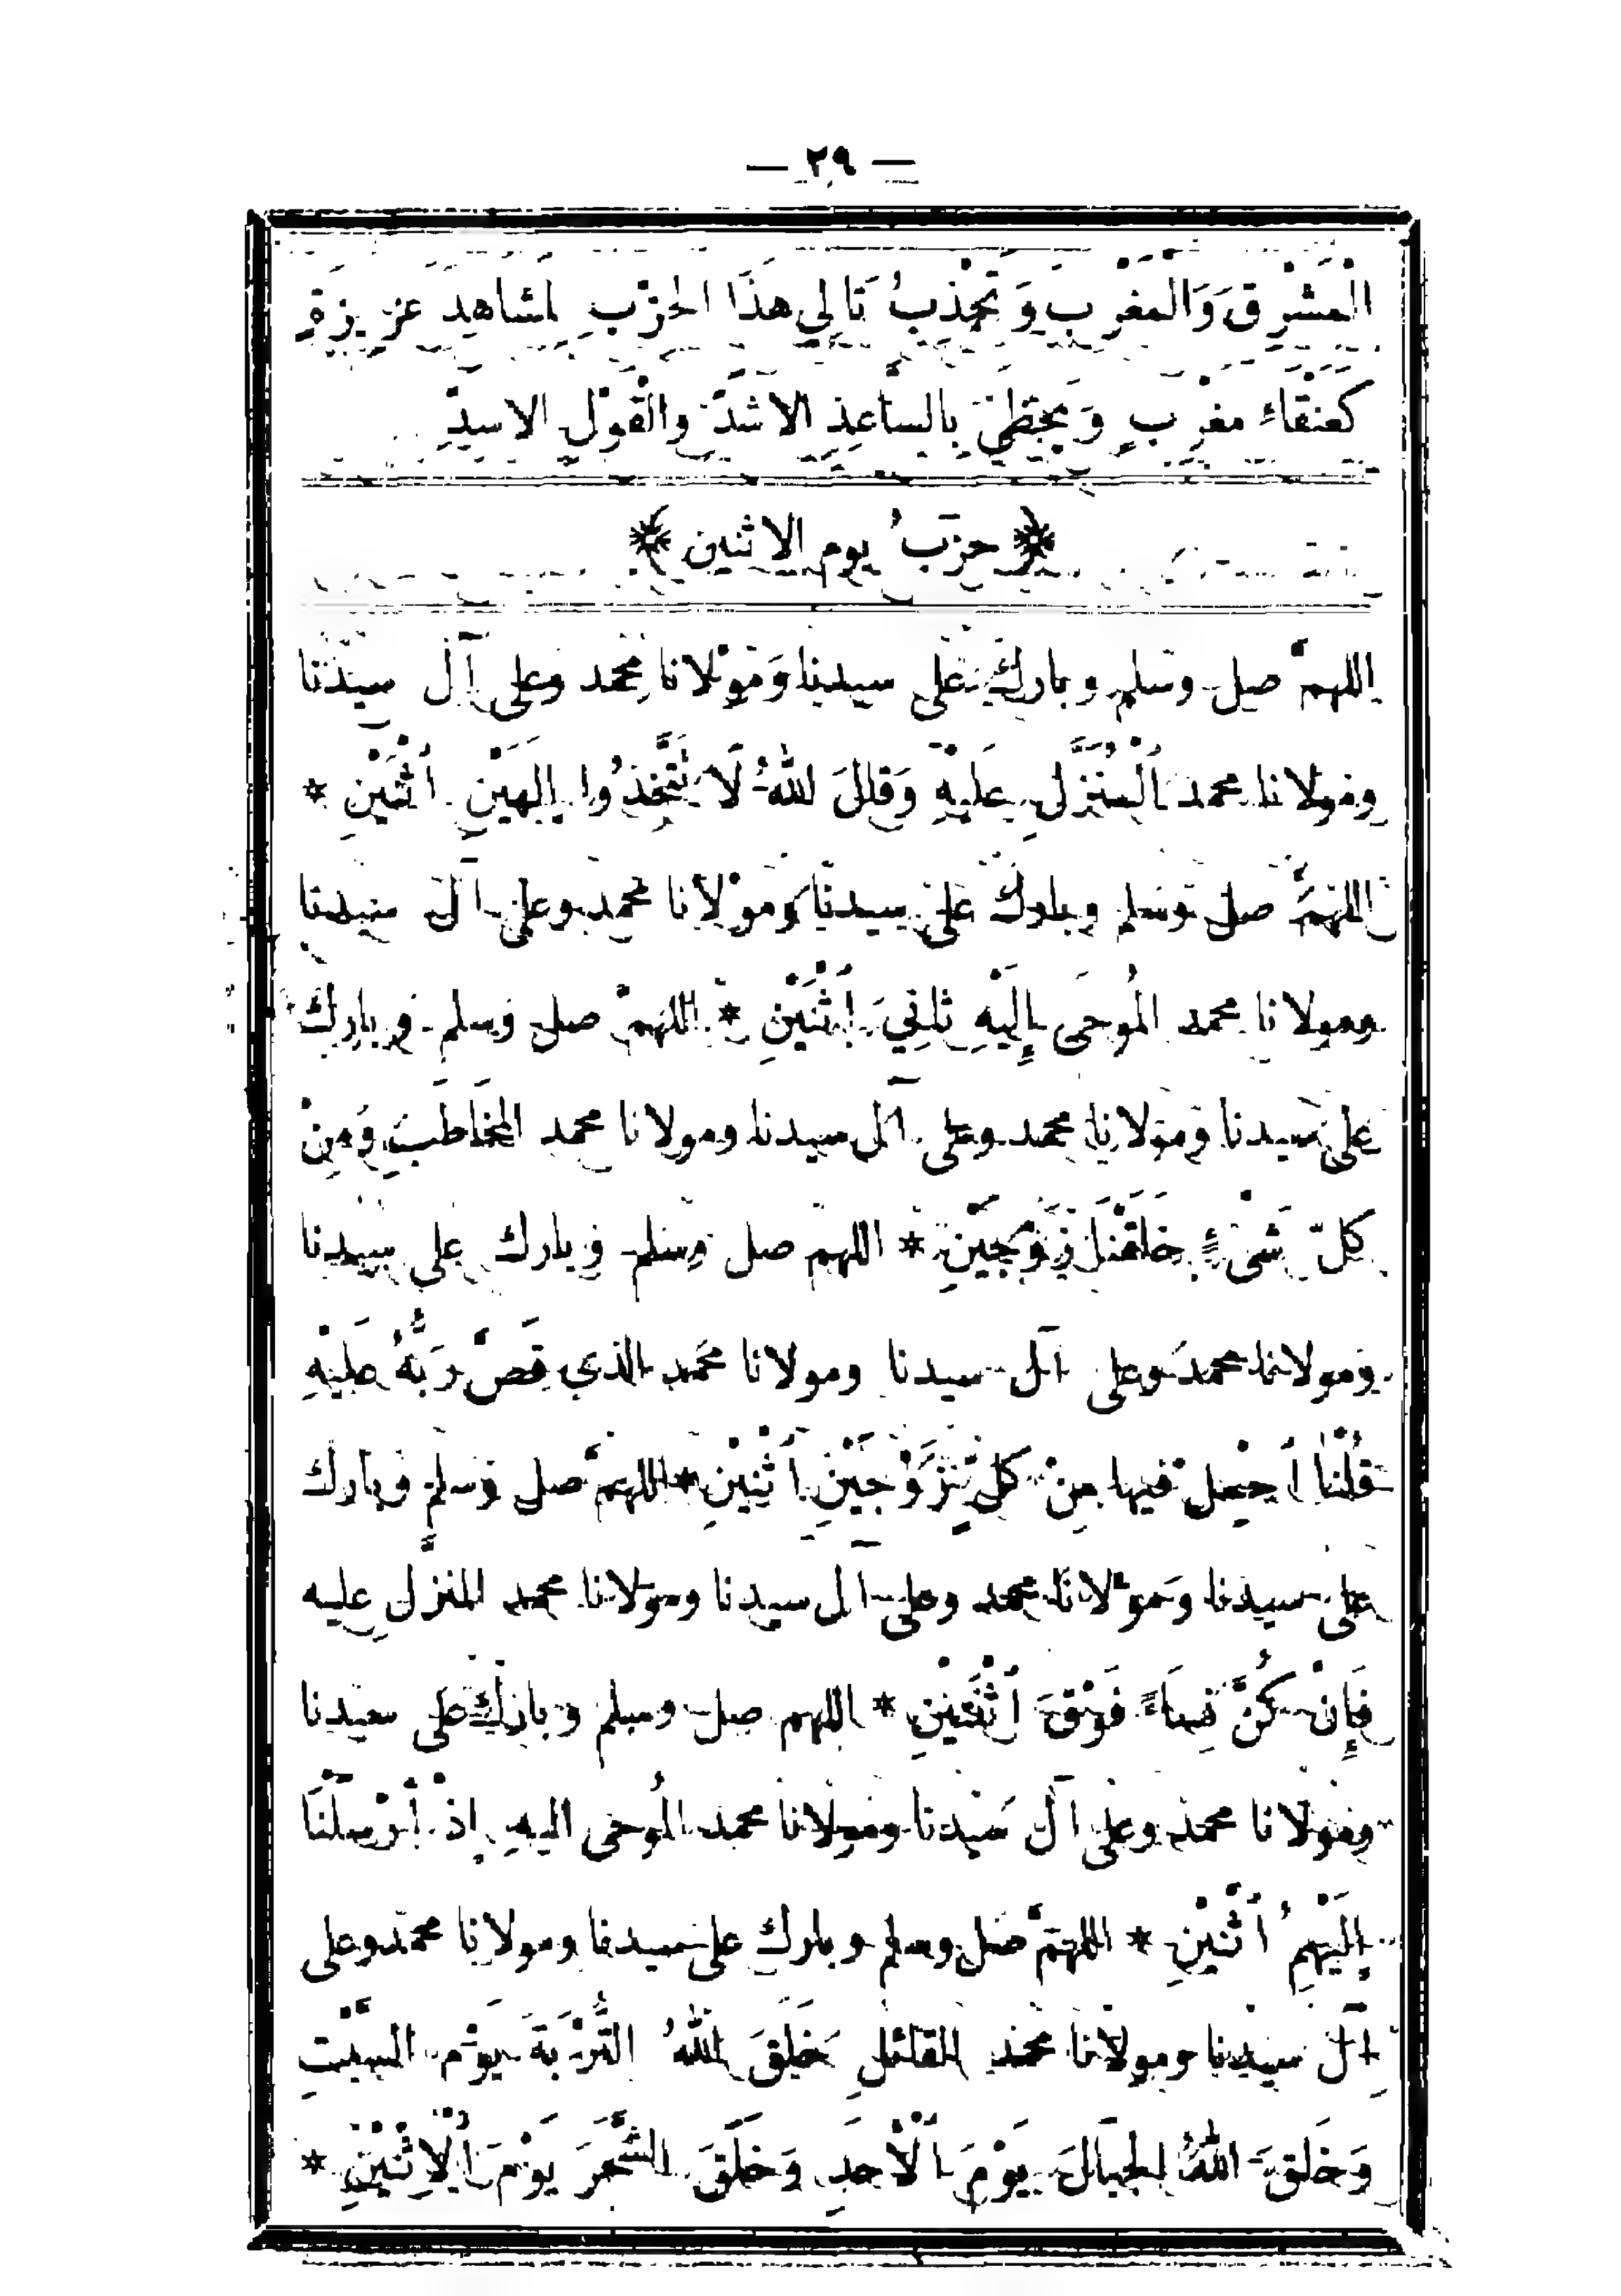 — ٢٩ —
الْمَشْرِقَ وَالْمَغْرِبَ وَتَجْذِبُ تَالِي هَذَا الحِزْبِ لمشاهِدِ عزِيزَةٍ
كَعَنْقَاءِ مغْرِبٍ وَيَحْظَى بِالسَّاعِدِ الاشَدِّ والْقَوْلِ الاسَدِّ
﴿ حِزْبُ يوم الاثنين ﴾
اللهمّ صل وسلم وبارك على سيدنا وَمَوْلانا محمد وعلى آل سيدنا
ومولانا محمد اَلْمُنَزَّلِ عَلَيْهِ وَقَالَ اللهُ لَا تَتَّخِذُوا إِلَهَيْنِ اَثْنَيْنِ *
اللهمَّ صل وسلم وبارك على سيدنا وموْلانا محمد وعلى آل سيدنا
ومولانا محمد المُوحَى إِلَيْهِ ثَانِيَ اَثْنَيْنِ * اللهمّ صل وسلم وبارك
على سيدنا ومولانا محمد وعلى آل سيدنا ومولانا محمد المخَاطَبِ وَمِنْ
كلّ شَىْءٍ خَلَقْنَا زَوْجَيْنِ * اللهمّ صل وسلم وبارك على سيدنا
ومولانا محمد وعلى آل سيدنا ومولانا محمد الذي قَصَّ رَبُّهُ عَلَيْهِ
قُلْنَا اَحْمِلْ فيها مِنْ كلّ زَوْجَيْنِ اَثْنَيْنِ * اللهمّ صل وسلم وبارك
على سيدنا وَموْلانا محمد وعلى آل سيدنا ومولانا محمد المنزلِ عليه
فَإِنْ كُنَّ نِسَاءً فَوْقَ اَثْنَتَيْنِ * اللهم صل وسلم وبارك على سيدنا
ومولانا محمد وعلى آل سيدنا ومولانا محمد المُوحى اليهِ إِذْ أَرْسَلْنَا
إِلَيْهِمُ اَثْنَيْنِ * اللهمّ صل وسلم وبارك على سيدنا ومولانا محمد وعلى
آل سيدنا ومولانا محمد القائلِ خَلَقَ اللهُ التُّرْبَةَ يَوْم السَّبْتِ
وَخَلَقَ اللهُ الجِبَالَ يَوْمَ اَلْأَحَدِ وَخَلَقَ الشَّجَرَ يَوْمَ اَلْاِثْنَيْنِ *